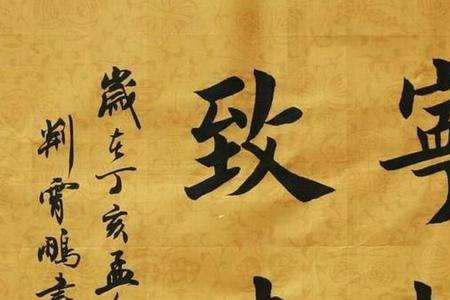 寧
致
歲在丁亥孟
荆霄鵬書